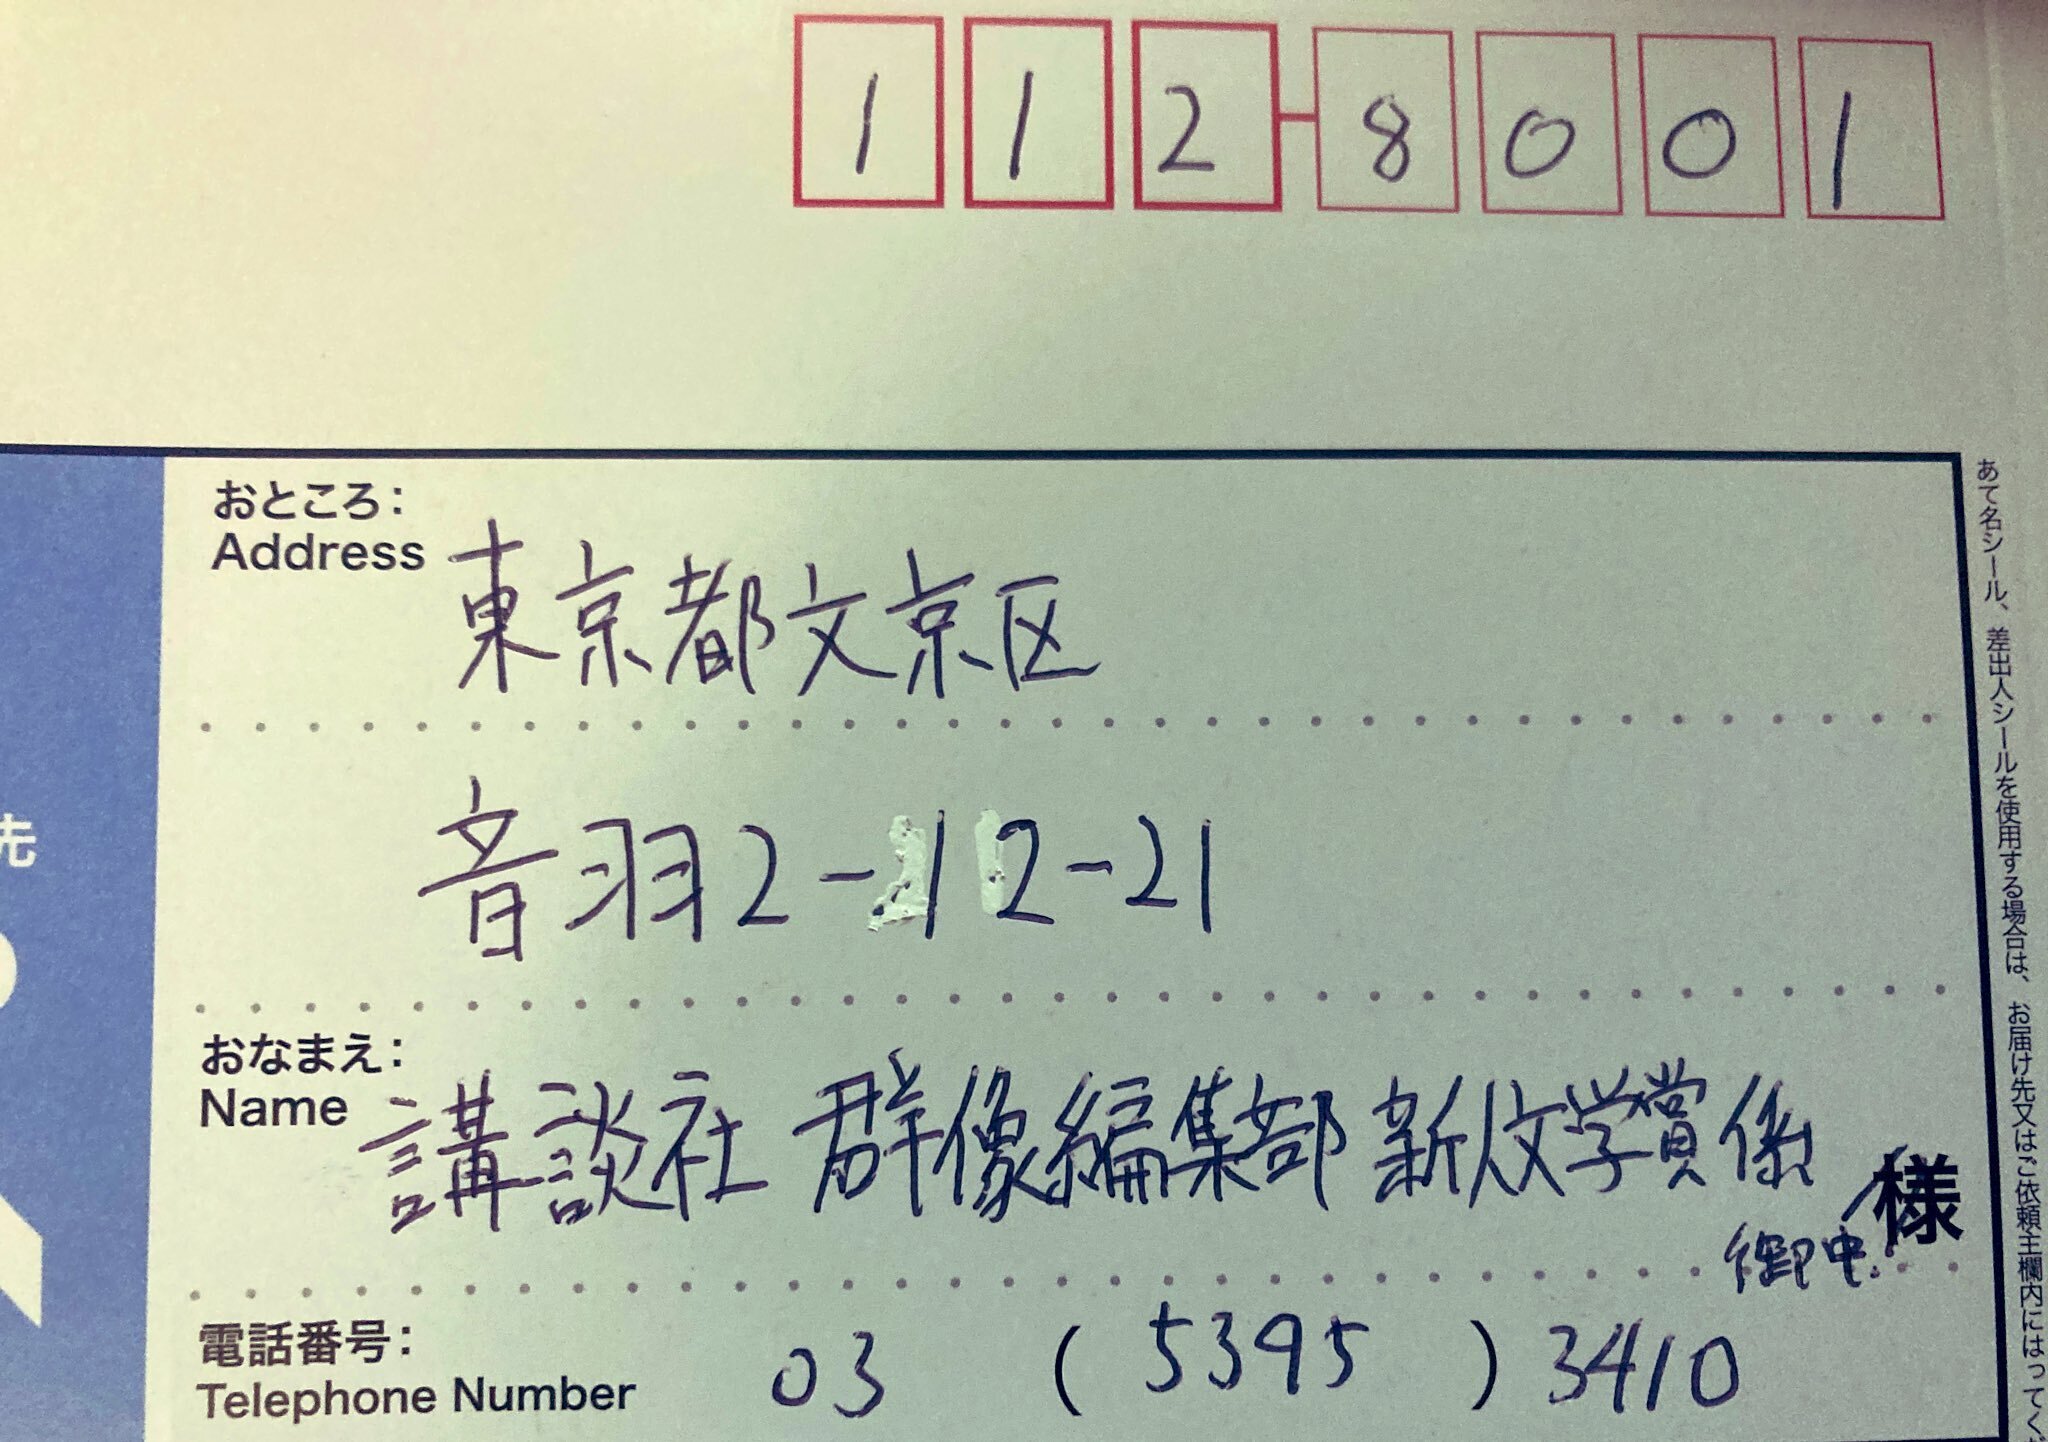 112-8001
おところ：
Address
東京都文京区
音羽2-12-21
おなまえ：
Name
講談社 群像編集部 新人文学賞係
様
御中
電話番号：
Telephone Number
03 (5395) 3410
先
あて名シール、差出人シールを使用する場合は、お届け先又はご依頼主欄内にはってく